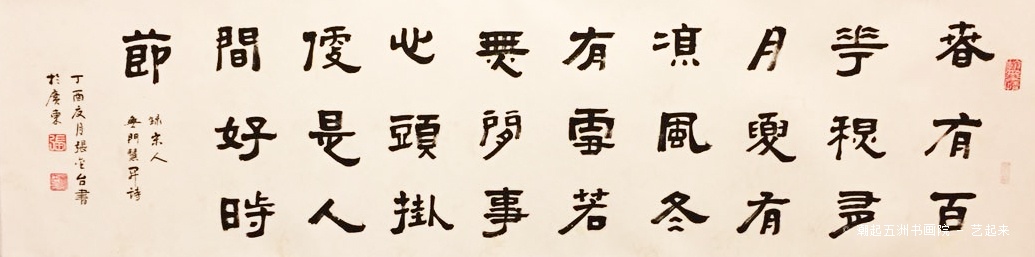 春有百
花秋有
月夏有
凉風冬
有雪若
無閒事
心頭掛
便是人
間好時
節
錄宋人
無門慧開詩
丁酉夏月張金台書
於廣東
朝起五洲书画院 · 艺起来